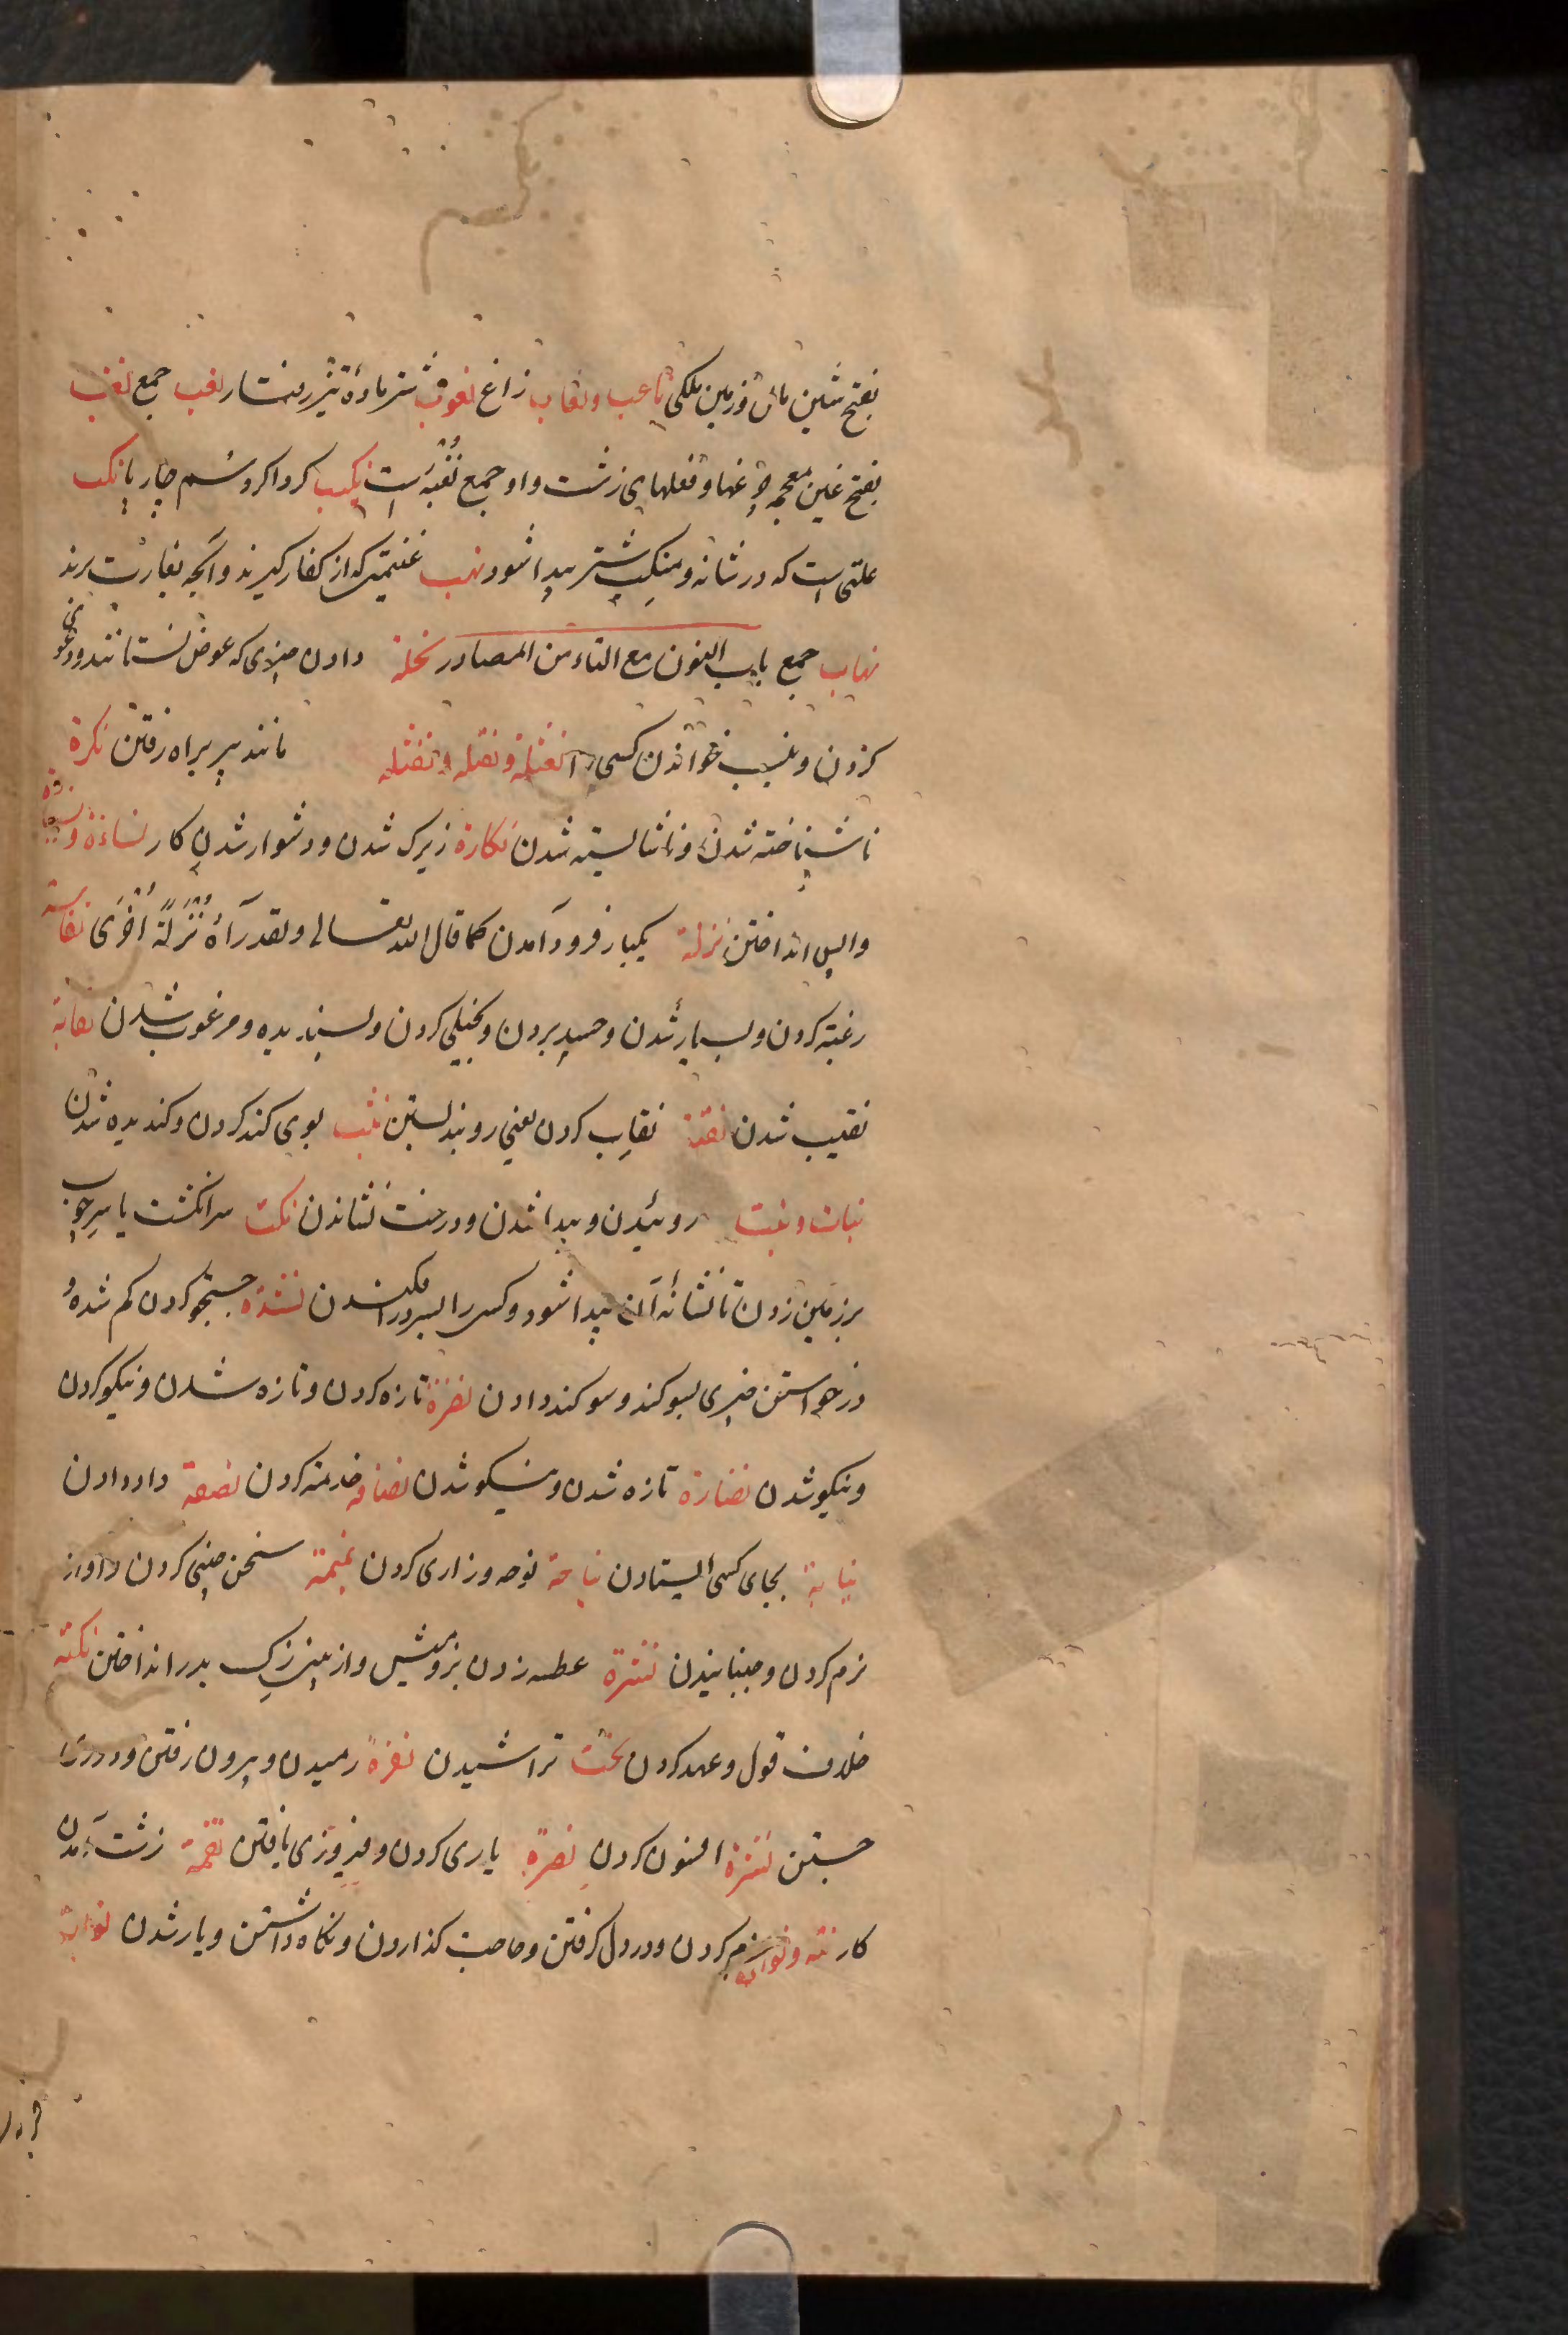 بفتح شین مال و زمین ملکی ناعب و نعاب زاغ نعوب شتر ماده تیز رفتار نغب جمع نغب
بفتح غین معجمه و فعلهای زشت و او جمع نغبه است نکیب کرداکرد سم چارپا نکب
علتی است که در شانه و منکب شتر پیدا شود نهب غنیمتی که از کفار کیرند و آنچه بغارت برند
نهاب جمع باب النون مع التاء من المصادر نحلة دادن چیزی که عوض نستانند و دعوی
کردن و بنسب خواندن کسی را نعثلة و نقثله مانند پیر براه رفتن نکرة
ناشناخته شدن و ناشایسته شدن نکارة زیرک شدن و دشوار شدن کار نساءة
واپس انداختن نزلة یکبار فرود آمدن کما قال الله تعالی و لقد رآه نزلة أخری نفاسة
رغبته کردن و بسیار شدن و حسد بردن و بخیلی کردن و پسندیده و مرغوب شدن نقابة
نقیب شدن نقبة نقاب کردن یعنی روبند بستن بوی کند کردن و کندیده شدن
نبات و نبت روئیدن و پیدا شدن و درخت نشاندن نکت سر انکشت یا سر چوب
بر زمین زدن تا نشانه آن پیدا شود و کسی را بسر در افکندن نشدة جستجو کردن کم شده و
درخواستن چیزی بسوکند و سوکند دادن نضرة تازه کردن و تازه شدن و نیکو کردن
و نیکو شدن نضارة تازه شدن و نیکو شدن نصافه خدمته کردن نصفة داد دادن
نیابة بجای کسی ایستادن نیاحة نوحه و زاری کردن نمیمة سخن چینی کردن و آواز
نرم کردن و جنبانیدن نثرة عطسه زدن بز و میش و از بینی بدر انداختن نکثه
خلاف قول و عهد کردن نحت تراشیدن نفرة رمیدن و بیرون رفتن و دوری
جستن نشرة افسون کردن نصرة یاری کردن و فیروزی یافتن نقمة زشت آمدن
کار نیه و نواة عزم کردن و در دل کرفتن و حاجت کذاردن و نکاه داشتن و یار شدن نوابة